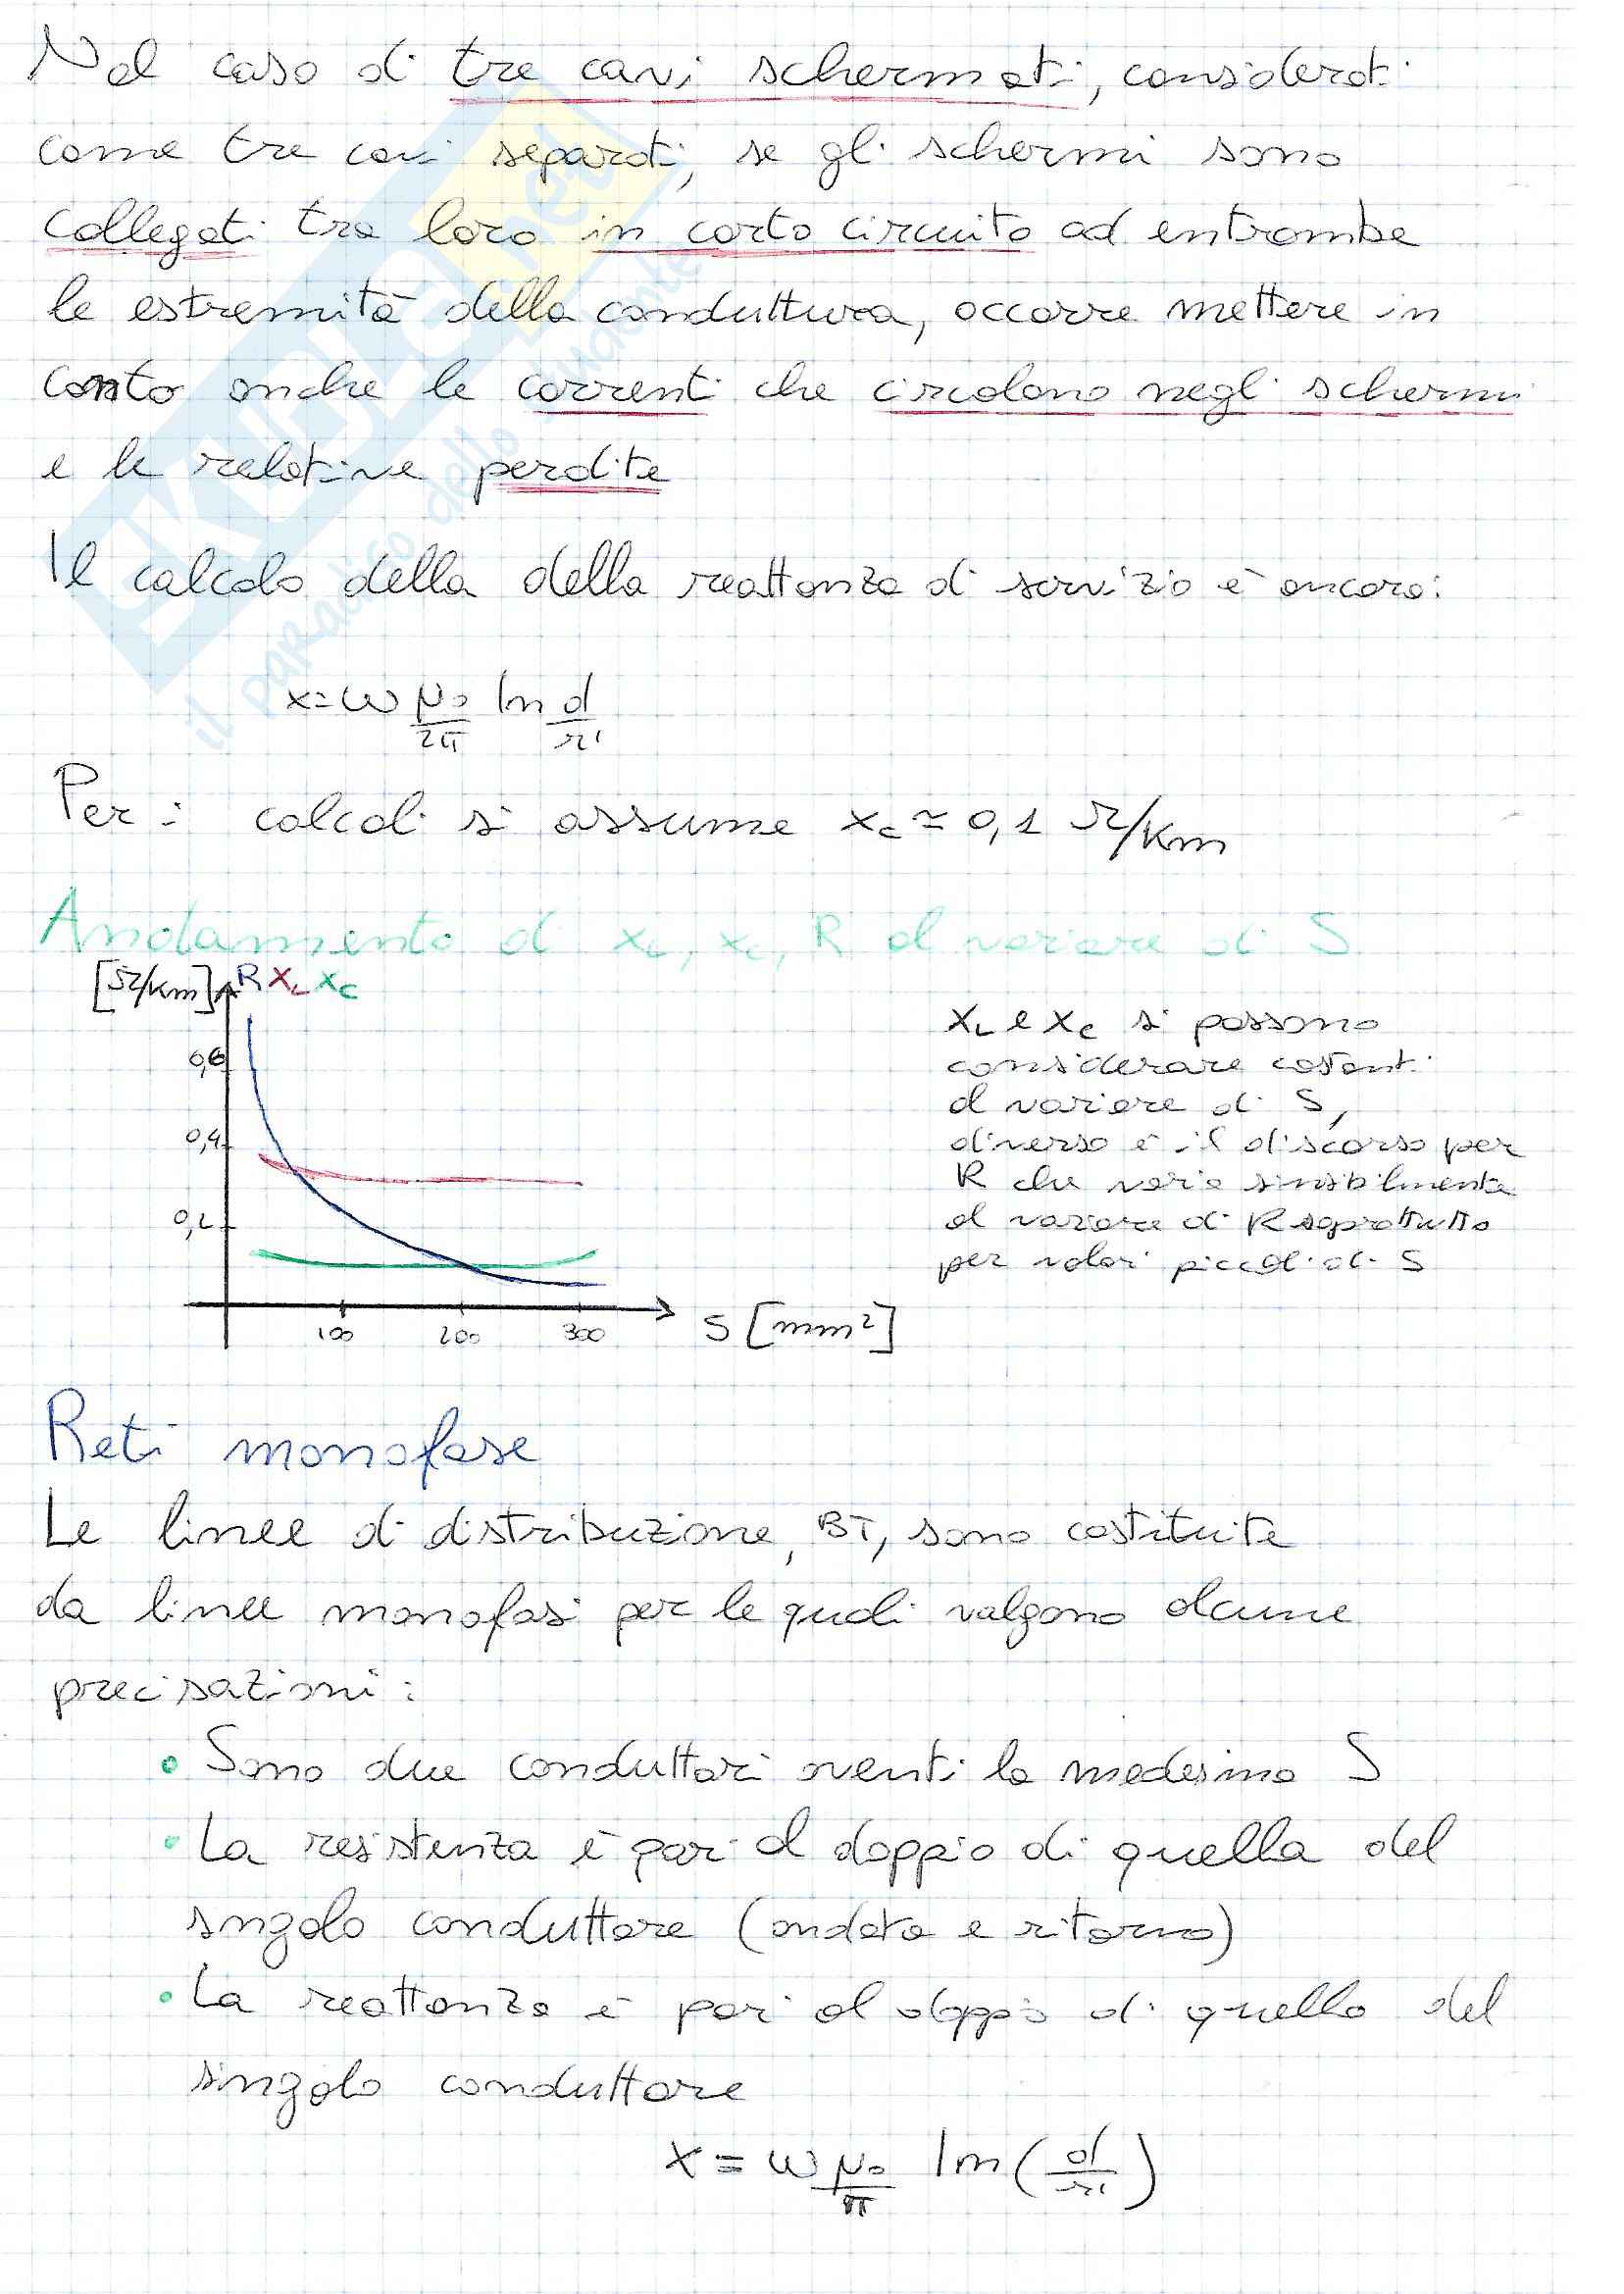 Nel caso di tre cavi schermati, considerati
come tre cavi separati, se gli schermi sono
collegati tra loro in corto circuito ad entrambe
le estremità della conduttura, occorre mettere in
conto anche le correnti che circolano negli schermi
e le relative perdite
Il calcolo della della reattanza di servizio è ancora:
x = ω μ₀/2π ln d/r'
Per i calcoli si assume xc ≃ 0,1 Ω/km
Andamento di xL, xc, R al variare di S
[Ω/km] R XL Xc
0,6
0,4
0,2
100 200 300 S [mm²]
XL e Xc si possono
considerare costanti
al variare di S,
diverso è il discorso per
R che varia sensibilmente
al variare di R soprattutto
per valori piccoli di S
Reti monofase
Le linee di distribuzione, BT, sono costituite
da linee monofasi per le quali valgono alcune
precisazioni:
• Sono due conduttori aventi la medesima S
• La resistenza è pari al doppio di quella del
singolo conduttore (andata e ritorno)
• La reattanza è pari al doppio di quella del
singolo conduttore
X = ω μ₀/π ln (d/r')
SKUOLA.net
il paradiso dello studente